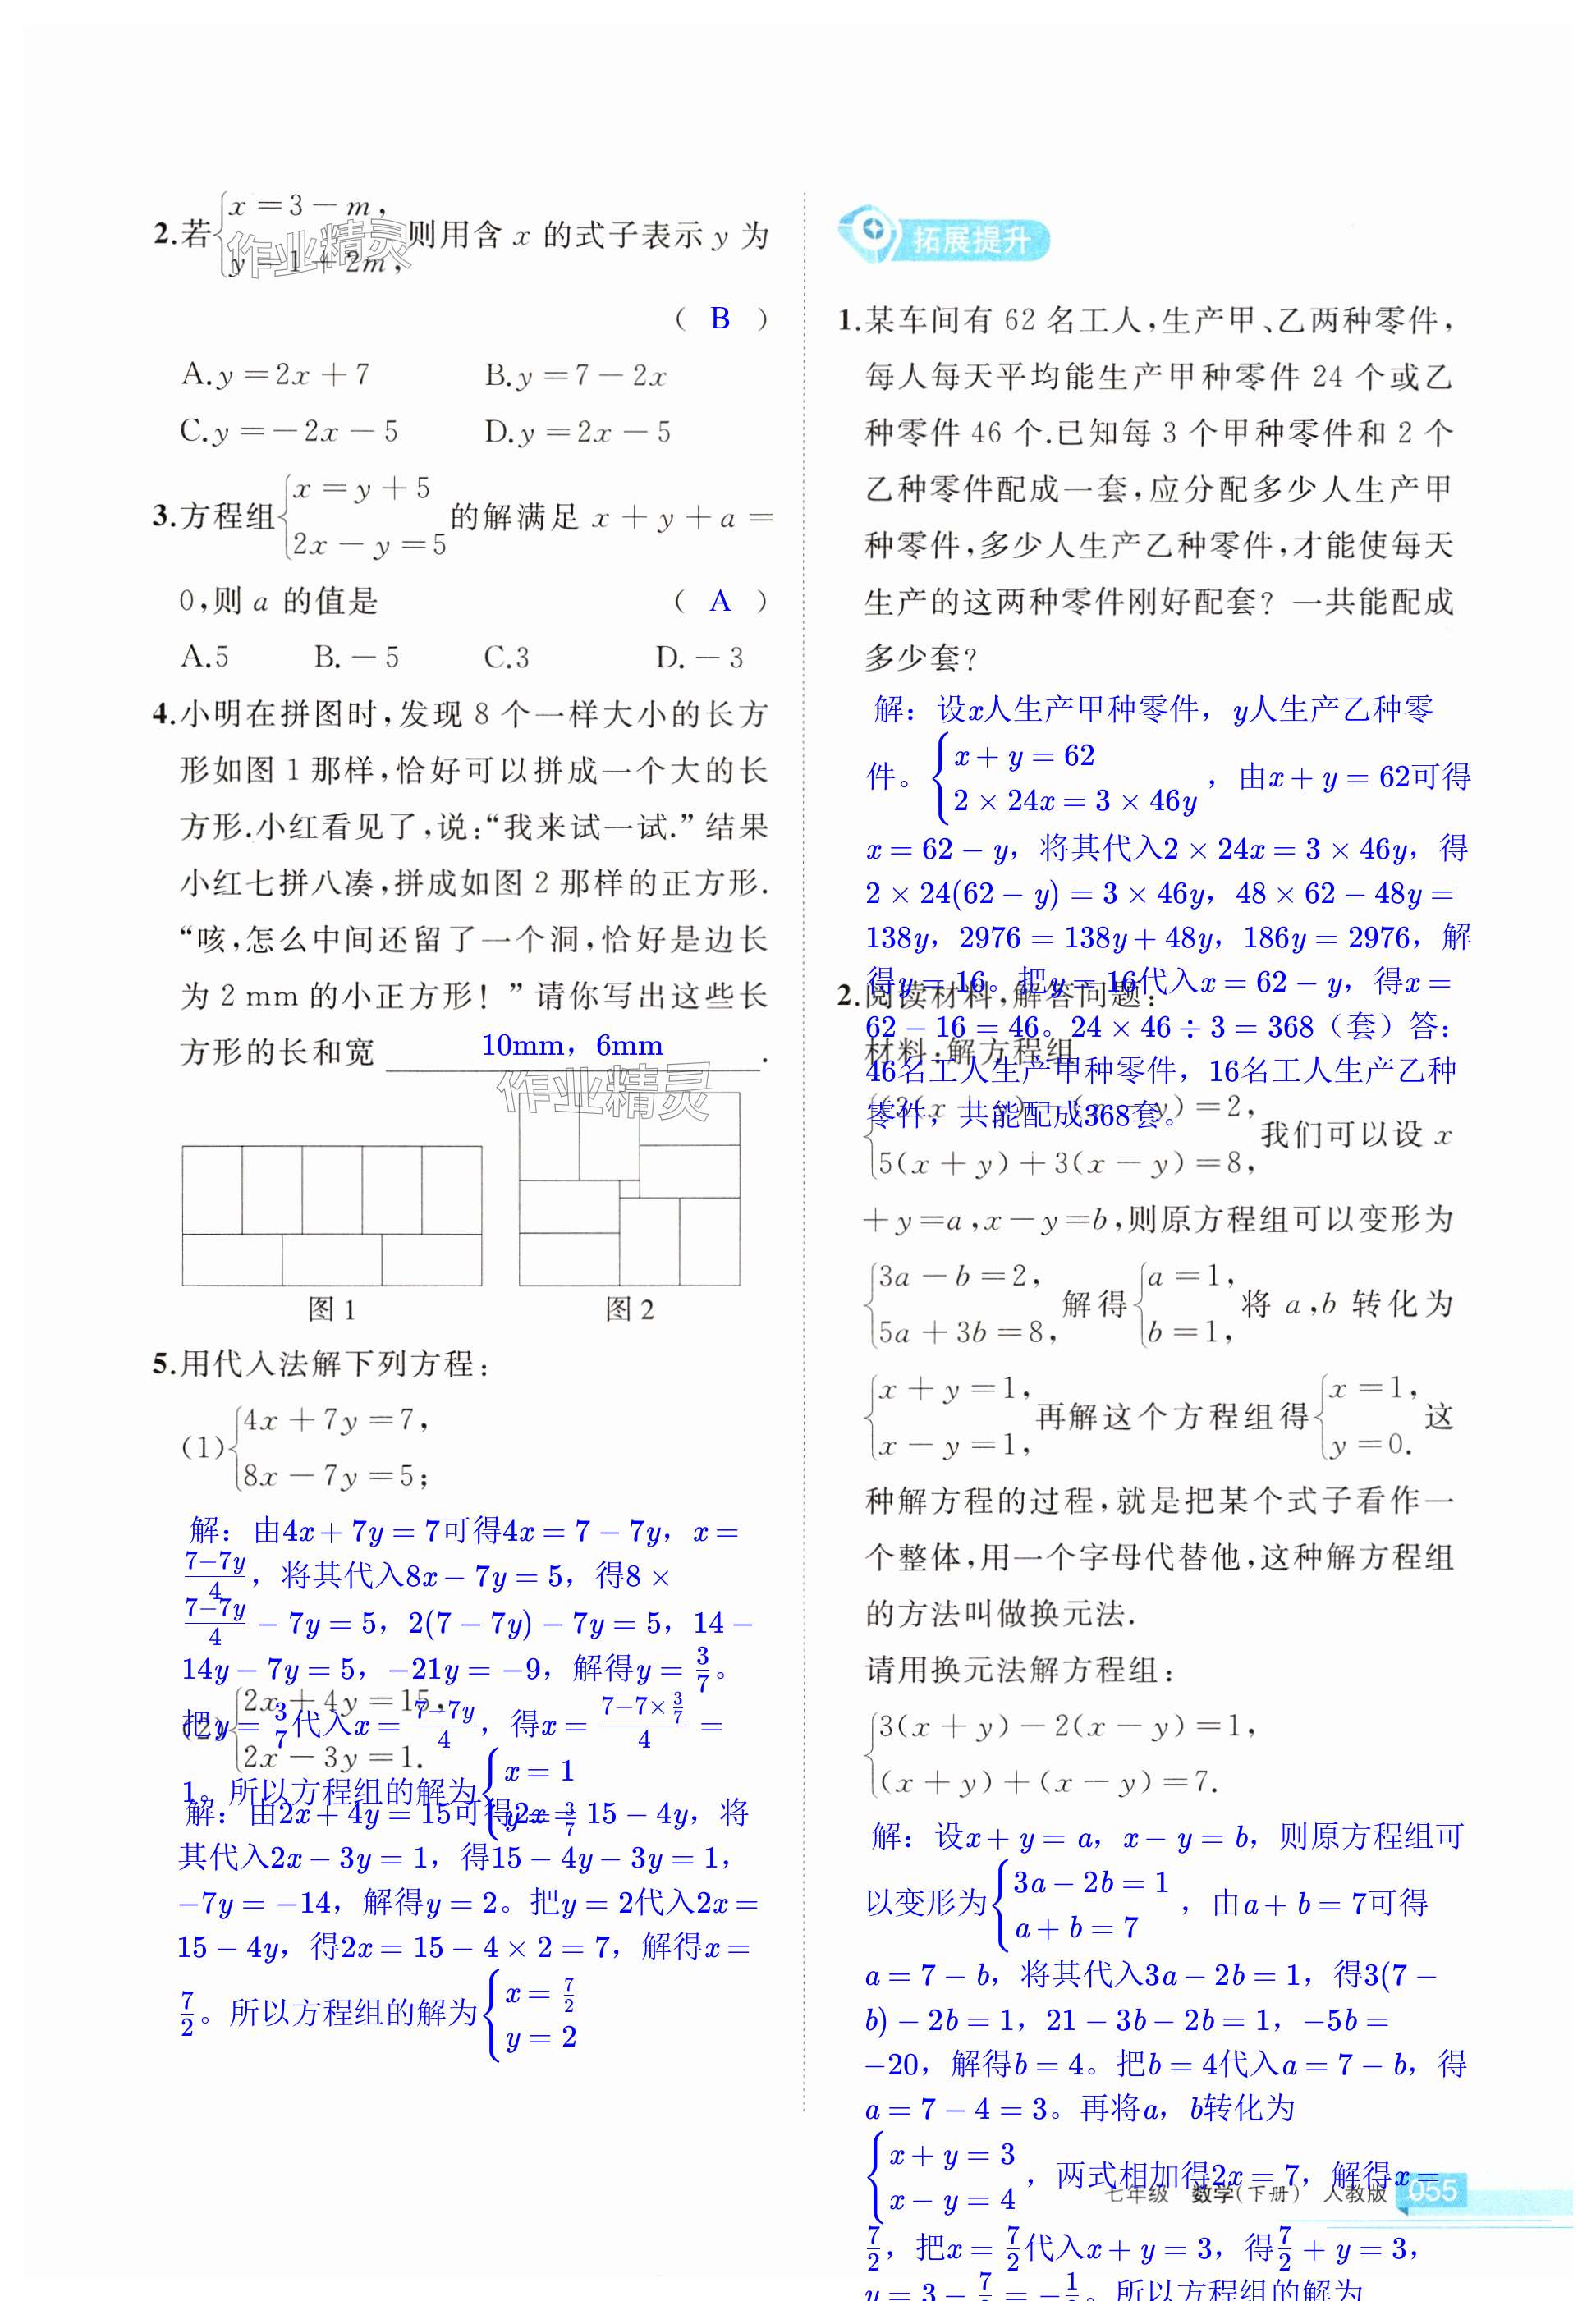 2.若{x=3-m,
y=1+2m, 则用含 x 的式子表示 y 为
( B )
A.y=2x+7 B.y=7-2x
C.y=-2x-5 D.y=2x-5
3.方程组{x=y+5
2x-y=5 的解满足 x+y+a=
0,则 a 的值是 ( A )
A.5 B.-5 C.3 D.-3
4.小明在拼图时,发现 8 个一样大小的长方
形如图 1 那样,恰好可以拼成一个大的长
方形.小红看见了,说:“我来试一试.”结果
小红七拼八凑,拼成如图 2 那样的正方形.
“咳,怎么中间还留了一个洞,恰好是边长
为 2 mm 的小正方形!”请你写出这些长
方形的长和宽 10mm，6mm .
作业精灵
作业精灵
图 1 图 2
5.用代入法解下列方程:
(1){4x+7y=7,
8x-7y=5;
解：由4x+7y=7可得4x=7-7y，x=
(7-7y)/4，将其代入8x-7y=5，得8×
(7-7y)/4-7y=5，2(7-7y)-7y=5，14-
14y-7y=5，-21y=-9，解得y=3/7。
把y=3/7代入x=(7-7y)/4，得x=(7-7×3/7)/4=
1。所以方程组的解为{x=1
y=3/7
(2){2x+4y=15,
2x-3y=1.
解：由2x+4y=15可得2x=15-4y，将
其代入2x-3y=1，得15-4y-3y=1，
-7y=-14，解得y=2。把y=2代入2x=
15-4y，得2x=15-4×2=7，解得x=
7/2。所以方程组的解为{x=7/2
y=2
拓展提升
1.某车间有 62 名工人,生产甲、乙两种零件,
每人每天平均能生产甲种零件 24 个或乙
种零件 46 个.已知每 3 个甲种零件和 2 个
乙种零件配成一套,应分配多少人生产甲
种零件,多少人生产乙种零件,才能使每天
生产的这两种零件刚好配套? 一共能配成
多少套?
解：设x人生产甲种零件，y人生产乙种零
件。{x+y=62
2×24x=3×46y ，由x+y=62可得
x=62-y，将其代入2×24x=3×46y，得
2×24(62-y)=3×46y，48×62-48y=
138y，2976=138y+48y，186y=2976，解
得y=16。把y=16代入x=62-y，得x=
62-16=46。24×46÷3=368（套）答：
46名工人生产甲种零件，16名工人生产乙种
零件，共能配成368套。
2.阅读材料,解答问题:
材料:解方程组
{3(x+y)-(x-y)=2,
5(x+y)+3(x-y)=8, 我们可以设 x
+y=a,x-y=b,则原方程组可以变形为
{3a-b=2,
5a+3b=8, 解得{a=1,
b=1, 将 a,b 转化为
{x+y=1,
x-y=1, 再解这个方程组得{x=1,
y=0. 这
种解方程的过程,就是把某个式子看作一
个整体,用一个字母代替他,这种解方程组
的方法叫做换元法.
请用换元法解方程组:
{3(x+y)-2(x-y)=1,
(x+y)+(x-y)=7.
解：设x+y=a，x-y=b，则原方程组可
以变形为{3a-2b=1
a+b=7 ，由a+b=7可得
a=7-b，将其代入3a-2b=1，得3(7-
b)-2b=1，21-3b-2b=1，-5b=
-20，解得b=4。把b=4代入a=7-b，得
a=7-4=3。再将a，b转化为
{x+y=3
x-y=4 ，两式相加得2x=7，解得x=
7/2，把x=7/2代入x+y=3，得7/2+y=3，
所以方程组的解为
七年级 数学(下册) 人教版 055